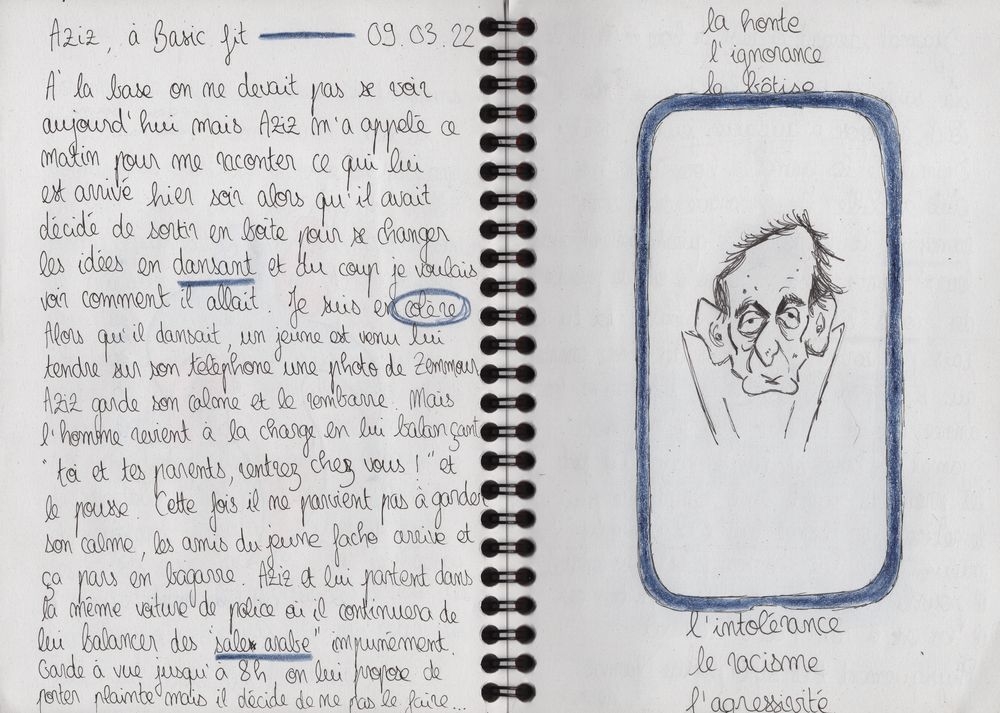 Aziz, à Basic fit 09.03.22
À la base on ne devait pas se voir
aujourd'hui mais Aziz m'a appelé ce
matin pour me raconter ce qui lui
est arrivé hier soir alors qu'il avait
décidé de sortir en boîte pour se changer
les idées en dansant et du coup je voulais
voir comment il allait. Je suis en colère
Alors qu'il dansait, un jeune est venu lui
tendre sur son téléphone une photo de Zemmour
Aziz garde son calme et le rembarre. Mais
l'homme revient à la charge en lui balançant
"toi et tes parents, rentrez chez vous !" et
le pousse. Cette fois il ne parvient pas à garder
son calme, les amis du jeune facho arrive et
ça pars en bagarre. Aziz et lui partent dans
la même voiture de police où il continuera de
lui balancer des "sale arabe" impunément.
Garde à vue jusqu'à 8h, on lui propose de
porter plainte mais il décide de ne pas le faire...
la honte
l'ignorance
la bêtise
l'intolérance
le racisme
l'agressivité